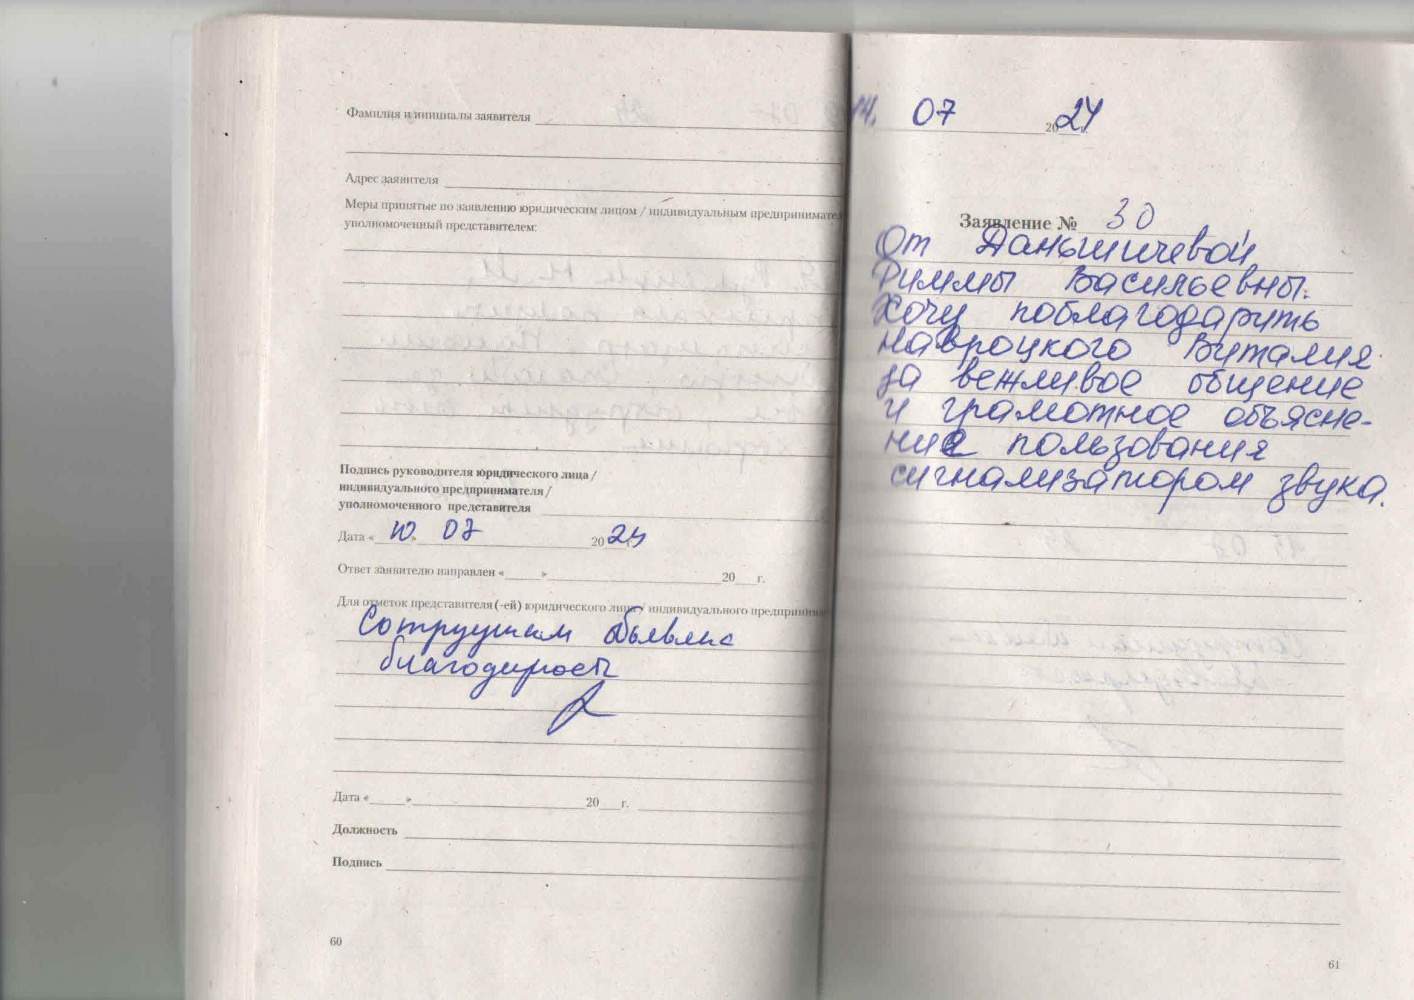 Фамилия и инициалы заявителя
Адрес заявителя
Меры принятые по заявлению юридическим лицом / индивидуальным предпринимател
уполномоченный представителем:
Подпись руководителя юридического лица /
индивидуального предпринимателя /
уполномоченного представителя
Дата «10» 07 2024
Ответ заявителю направлен «____» 20___г.
Для отметок представителя (-ей) юридического лица / индивидуального предприним
Сотрудникам объявлена
благодарность
Дата «____» 20___г.
Должность
Подпись
60
14. 07 2024
Заявление № 30
От Даньшичевой
Риммы Васильевны.
Хочу поблагодарить
Навроцкого Виталия
за вежливое общение
и грамотное объясне-
ние пользования
сигнализатором звука.
61